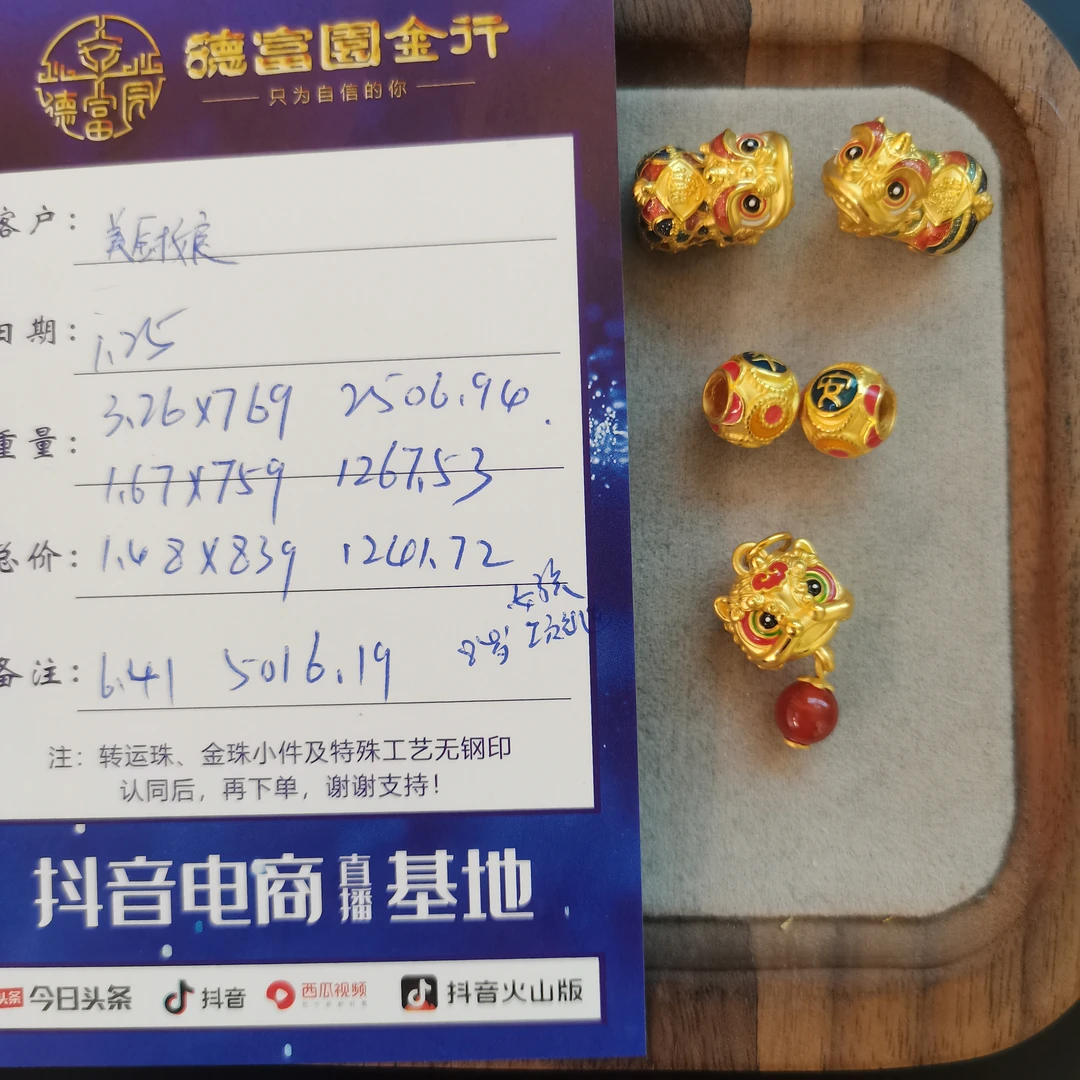 德富園
德富園金行
只为自信的你
客户：
日期：1.25
3.26x769 2506.94.
重量：
1.67x759 1267.53
总价：1.48x839 1241.72
备注：6.41 5016.19
注：转运珠、金珠小件及特殊工艺无钢印
认同后，再下单，谢谢支持！
抖音电商直播基地
头条 今日头条 抖音 西瓜视频 抖音火山版
安